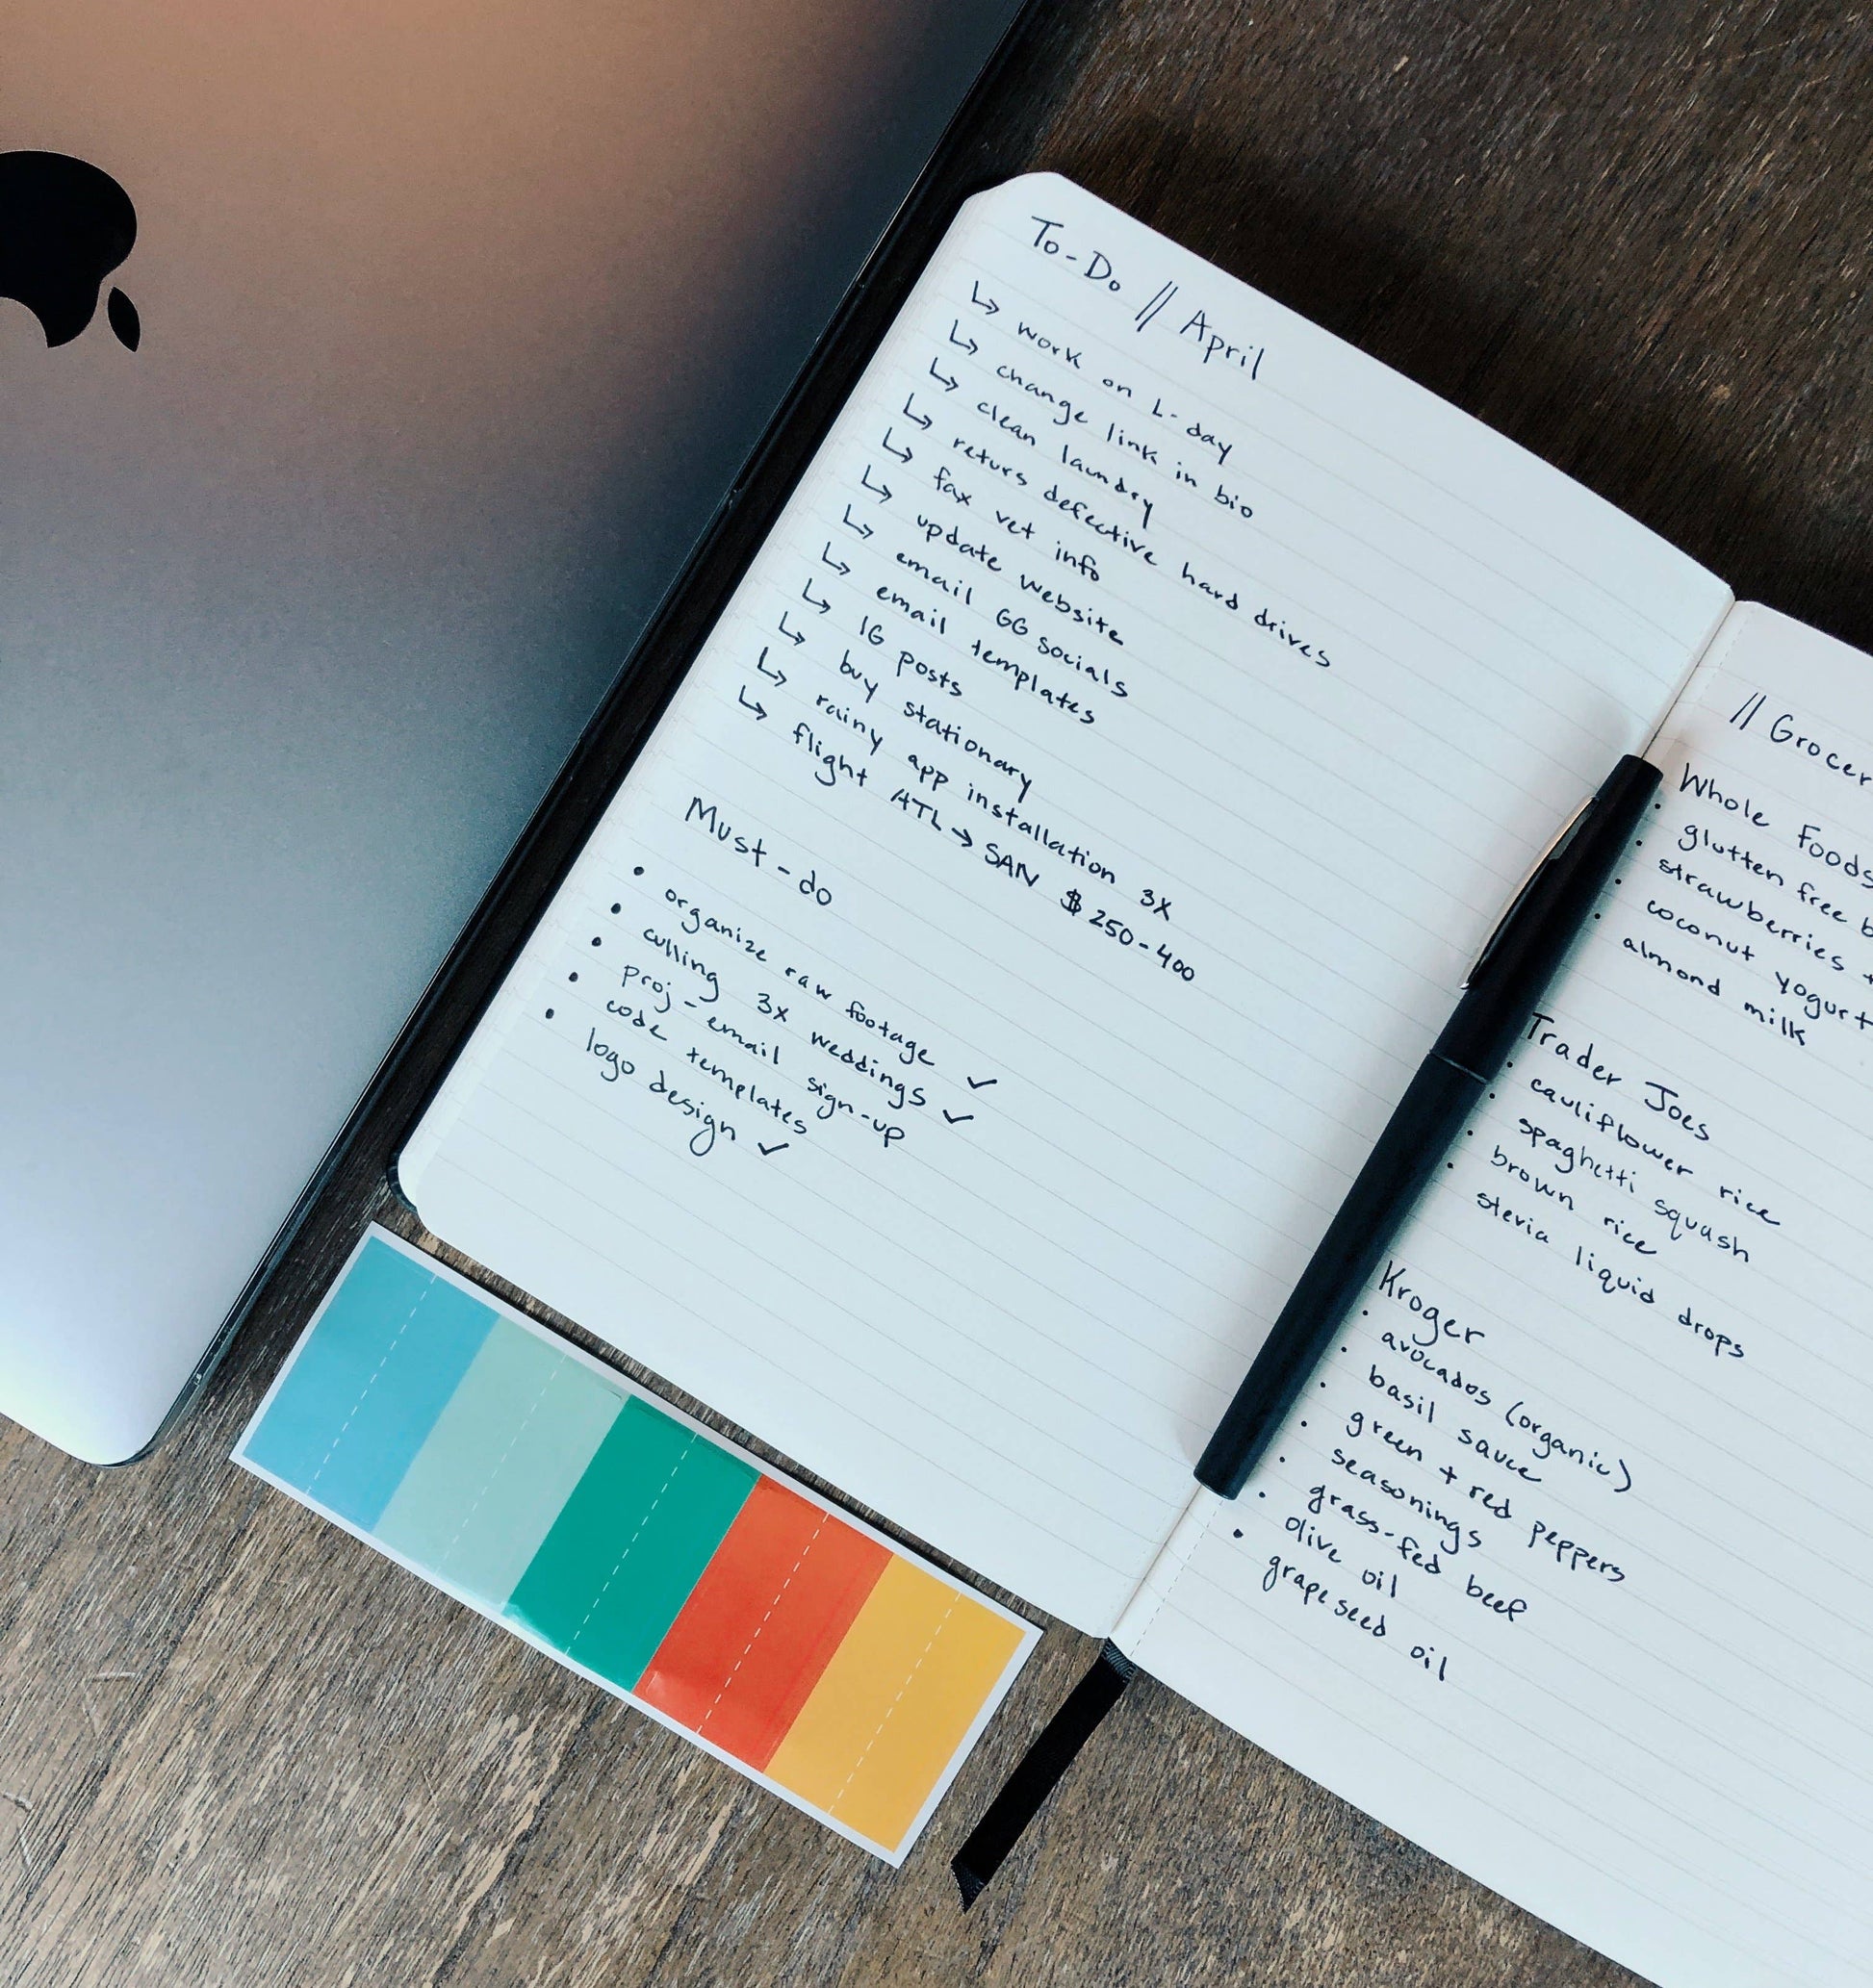 To-Do // April
↳ work on L-day
↳ change link in bio
↳ clean laundry
↳ return defective hard drives
↳ fax vet info
↳ update website
↳ email GG socials
↳ email templates
↳ IG posts
↳ buy stationary
↳ rainy app installation 3x
↳ flight ATL → SAN $250-400
Must-do
• organize raw footage ✓
• culling 3x weddings ✓
• proj-email sign-up
• code templates
• logo design ✓
// Grocer
Whole Foods
• glutten free
• strawberries +
• coconut yogurt
• almond milk
Trader Joes
• cauliflower rice
• spaghetti squash
• brown rice
• stevia liquid drops
Kroger
• avocados (organic)
• basil sauce
• green + red peppers
• seasonings
• grass-fed beef
• olive oil
• grapeseed oil